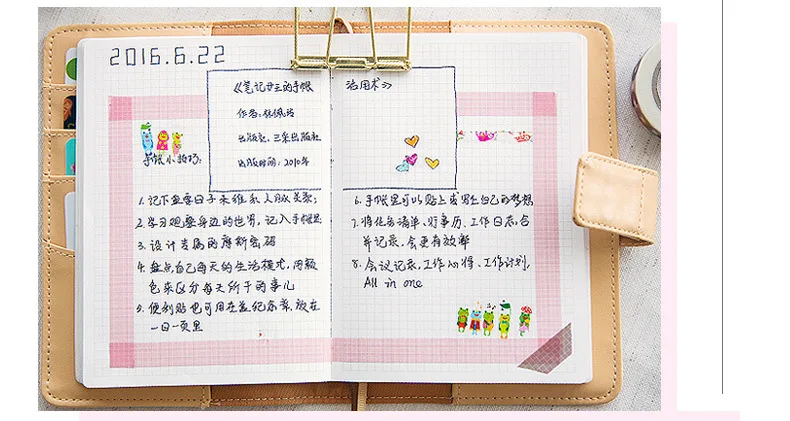 2016.6.22
《笔记女王的手帐活用术》
作者：张佩琦
出版社：三采出版社
出版时间：2010年
手帐小技巧：
1. 记下重要日子来维系人脉关系；
2. 学习观察身边的世界，记入手帐里
3. 设计专属的摩斯密码
4. 盘点自己每天的生活模式，用颜
色来区分每天所干的事儿
5. 便利贴也可用在差纪念养，放在
一日一页里
6. 手帐里可以贴上或写上自己的梦想
7. 将任务清单、行事历、工作日志，合
并记录，会更有效率
8. 会议记录，工作心得、工作计划，
All in one